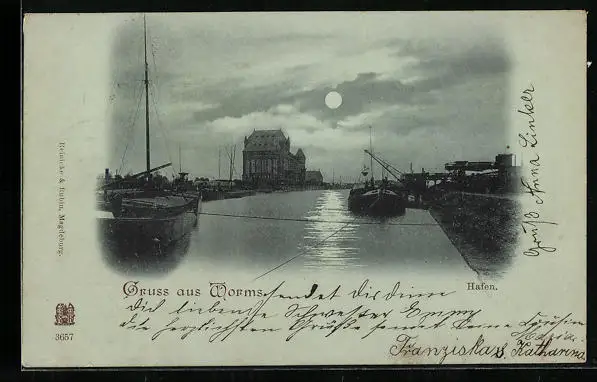 Gruss aus Worms.
Hafen.
sendet dir deine
dich liebende Schwester Emmy
die herzlichsten Grüße sendet
Franziska u. Katharina
Gruß Anna Linker
Reinicke & Rubin, Magdeburg.
3657